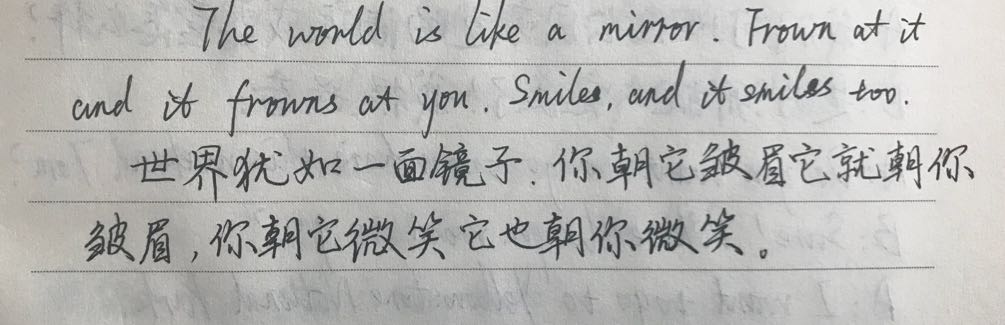 The world is like a mirror. Frown at it
and it frowns at you. Smiles, and it smiles too.
世界犹如一面镜子.你朝它皱眉它就朝你
皱眉,你朝它微笑它也朝你微笑。